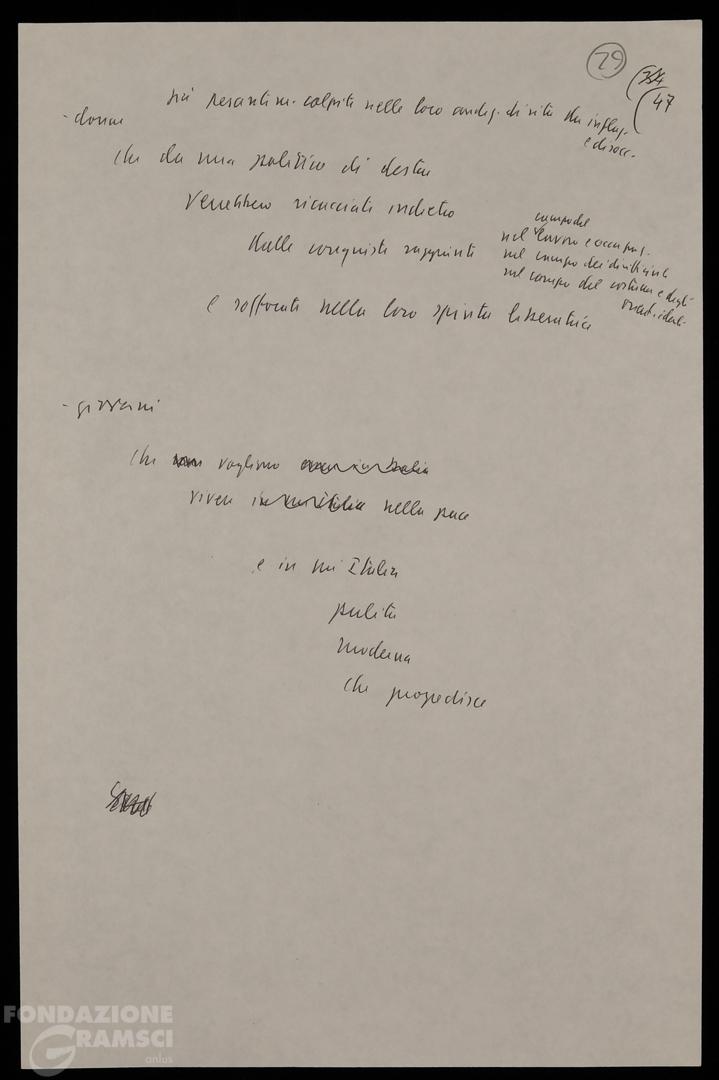 29
354
47
già pesantem. colpite nelle loro condiz. di vita da inflaz.
e disocc.
- donne
che da una politica di destra
verrebbero ricacciate indietro
campo del
dalle conquiste raggiunte nel lavoro e occupaz.
nel campo dei diritti civili
nel campo del costume e degli
e soffocate nella loro spinta liberatrice
- giovani
che vogliono
vivere nella pace
e in un'Italia
pulita
moderna
che progredisce
FONDAZIONE
GRAMSCI
onlus